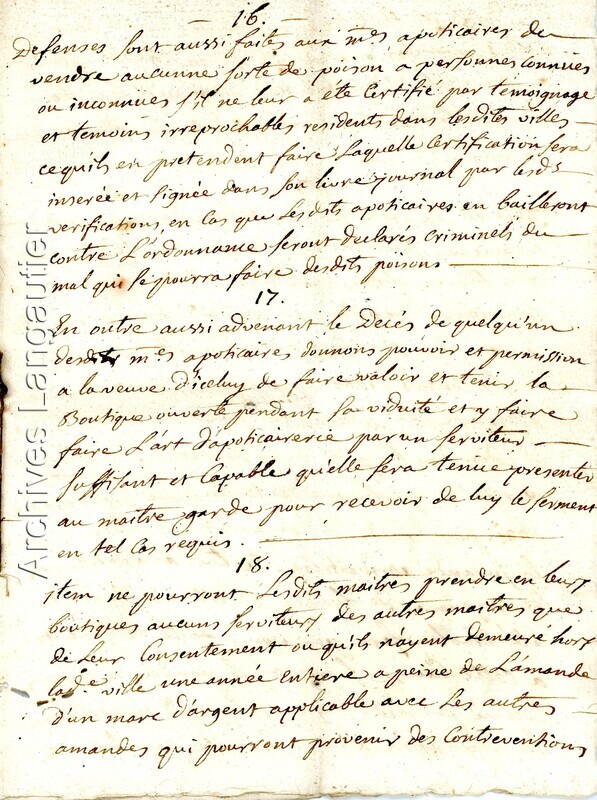 16.
Defenses sont aussi faites aux mes apoticaires de
vendre aucunne sorte de poison a personnes connues
ou inconnues s'il ne leur a eté Certifié par temoignage
et temoins irreprochables residents dans lesdites villes
ce quils en pretendent faire Laquelle Certification sera
inserée et signée dans son livre journal par lesds
verifications, en Cas que Lesdits apoticaires en bailleront
contre L'ordonnance seront declarés criminels du
mal qui se pourra faire desdits poisons
17.
En outre aussi advenant le Decés de quelqu'un
desdits mes apoticaires donnons pouvoir et permission
a la veuve d'iceluy de faire valoir et tenir la
Boutique ouverte pendant sa viduité et y faire
faire L'art d'apoticairerie par un serviteur
suffisant et Capable qu'elle sera tenüe presenter
au maitre garde pour recevoir de luy le serment
en tel Cas requis.
18.
item ne pourront Lesdits maitres prendre en leurs
boutiques aucuns serviteurs des autres maitres que
de Leur Consentement ou qu'ils n'ayent demeuré hors
lade ville une année Entiere a peine de L'amande
d'un marc d'argent applicable avec Les autres
amandes qui pourront provenir des Contreventions
Archives Langautier